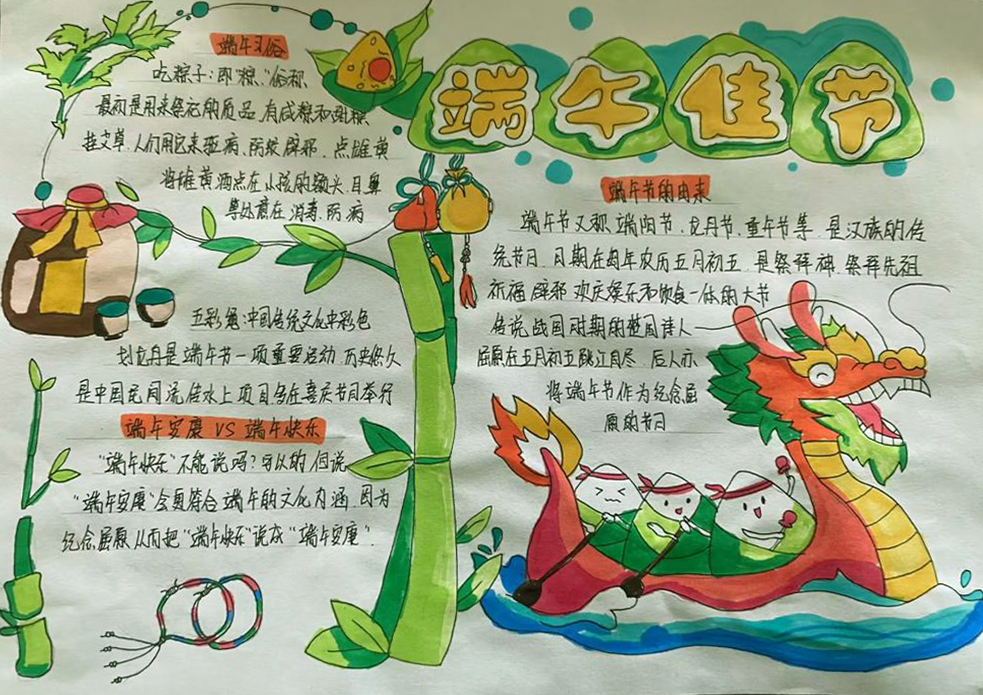 端午佳节
端午习俗
吃粽子:即"粽"俗称
最初是用来祭祀的质品.有咸粽和甜粽
挂艾草.人们用它来驱病、防蚊、辟邪.点雄黄
将雄黄酒点在小孩的额头、耳鼻
等处意在消毒、防病
五彩绳:中国传统文化中彩色
划龙舟是端午节一项重要运动,历史悠久
是中国民间流传水上项目多在喜庆节日举行
端午安康 VS 端午快乐
"端午快乐"不能说吗?可以的,但说
"端午安康"会更符合端午的文化内涵.因为
纪念屈原从而把"端午快乐"说成"端午安康".
端午节的由来
端午节又称端阳节、龙舟节、重午节等,是汉族的传
统节日,日期在每年农历五月初五,是祭拜神、祭拜先祖
祈福、辟邪、欢庆娱乐和饮食一体的大节
传说战国时期的楚国诗人
屈原在五月初五跳江自尽,后人亦
将端午节作为纪念屈
原的节日